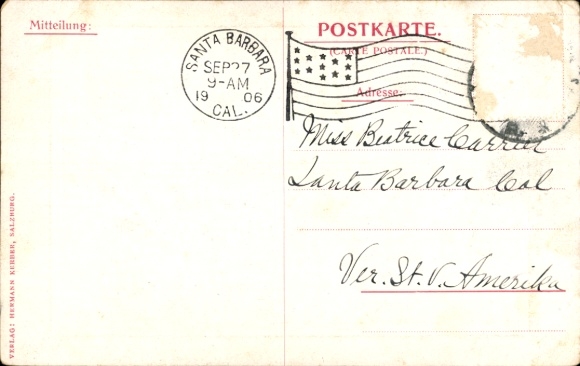 Mitteilung:
POSTKARTE.
(CARTE POSTALE.)
Adresse:
SANTA BARBARA
SEP 27
9-AM
1906
CAL.
Miss Beatrice Carrier
Santa Barbara Cal
Ver. St. v. Amerika
VERLAG: HERMANN KERBER, SALZBURG.